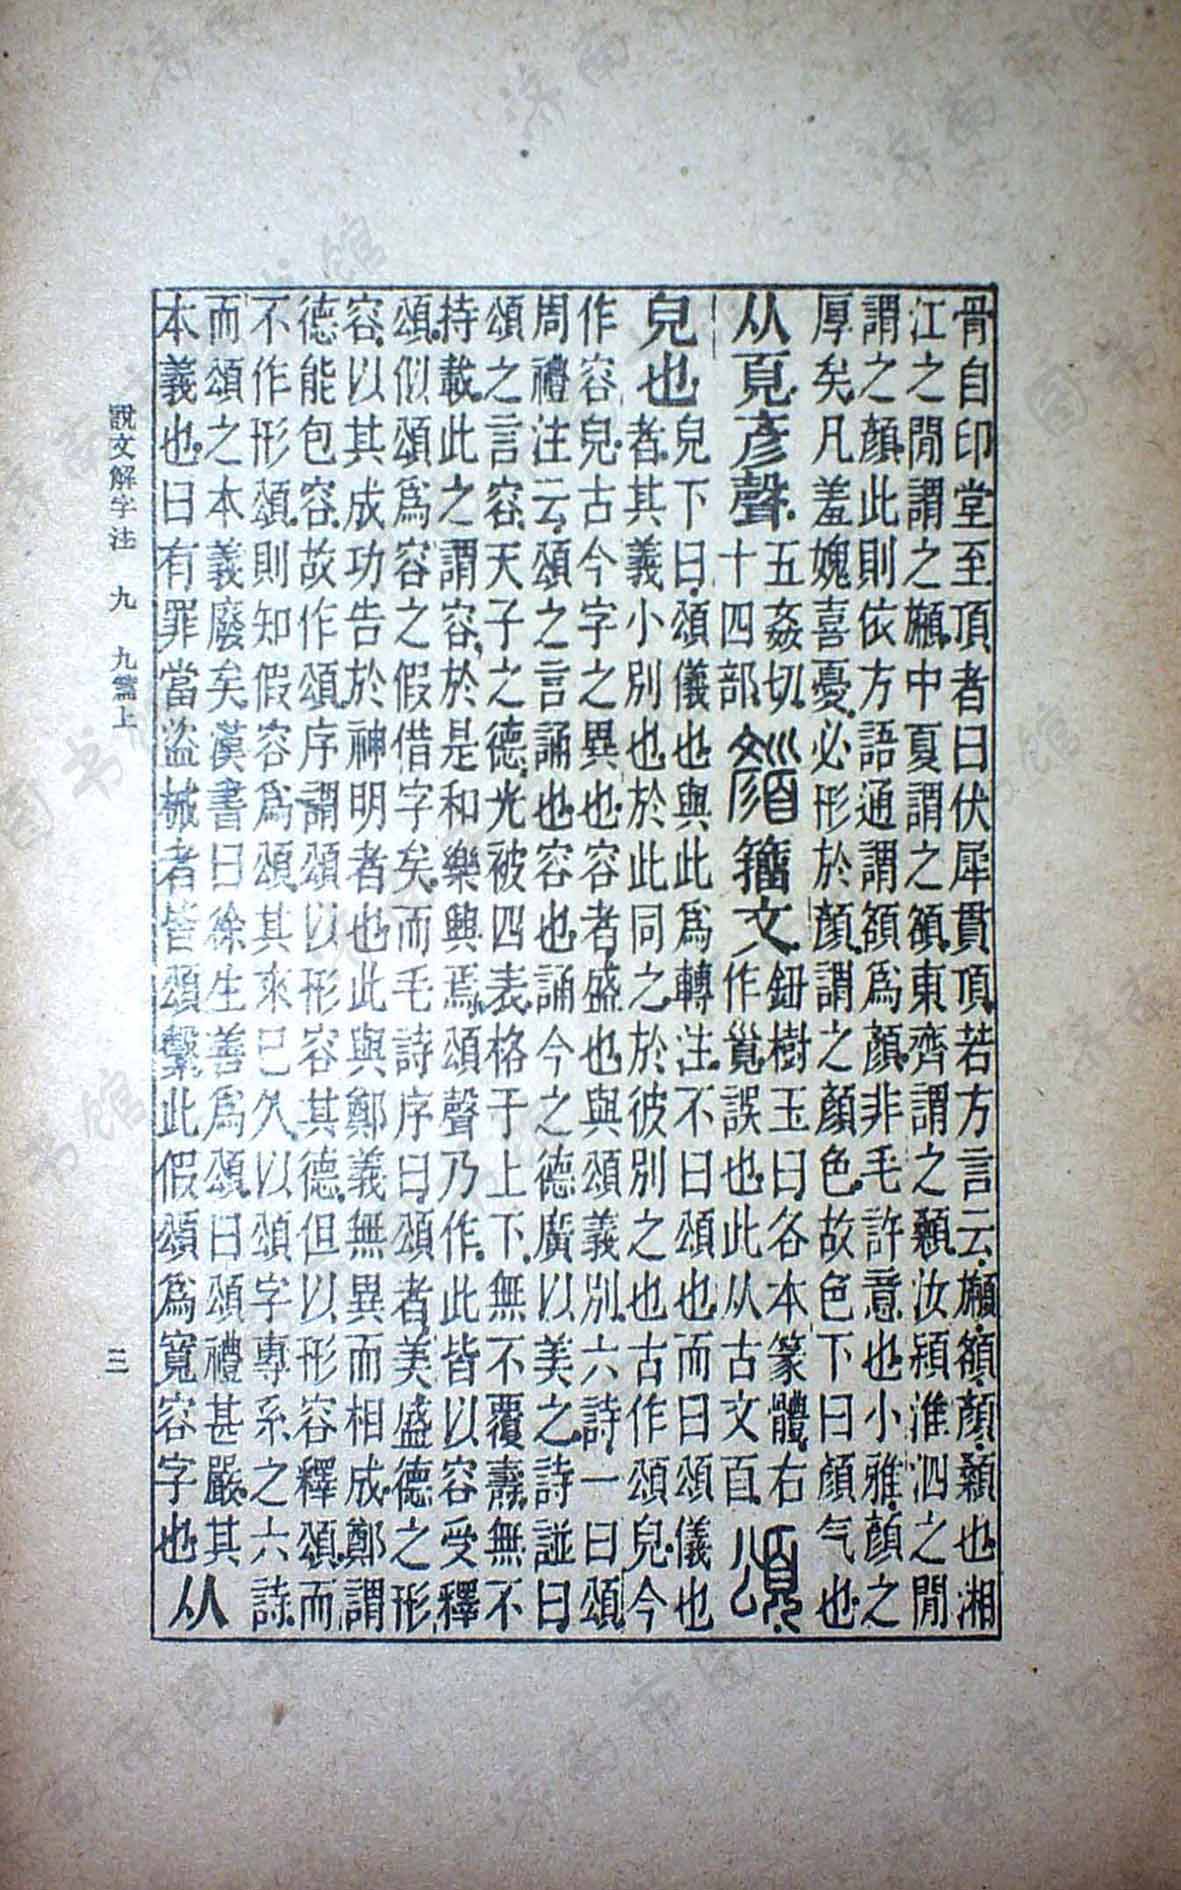 骨自印堂至頂者曰伏犀貫頂若方言云額顏顙也湘
江之閒謂之中夏謂之額東齊謂之顙汝潁淮泗之閒
謂之顏此則依方語通謂額爲顏非毛許意也小雅顏之
厚矣凡羞媿喜憂必形於顏謂之顏色故色下曰顏气也
从頁彥聲五姦切十四部籒文鈕樹玉曰各本篆體右作誤也此从古文𦣻頌
皃也皃下曰頌儀也與此爲轉注不曰頌也而曰頌儀也
者其義小別也於此同之於彼別之也古作頌皃今
作容皃古今字之異也容者盛也與頌義別六詩一曰頌
周禮注云頌之言誦也容也誦今之德廣以美之詩䜍曰
頌之言容天子之德光被四表格于上下無不覆燾無不
持載此之謂容於是和樂興焉頌聲乃作此皆以容受釋
頌似頌爲容之假借字矣而毛詩序曰頌者美盛德之形
容以其成功告於神明者也此與鄭義無異而相成鄭謂
德能包容故作頌序謂頌以形容其德但以形容釋頌而
不作形頌則知假容爲頌其來已久以頌字專系之六詩
而頌之本義廢矣漢書曰徐生善爲頌曰頌禮甚嚴其
本義也曰有罪當盜械者皆頌繫此假頌爲寬容字也从
說文解字注 九 九篇上 三